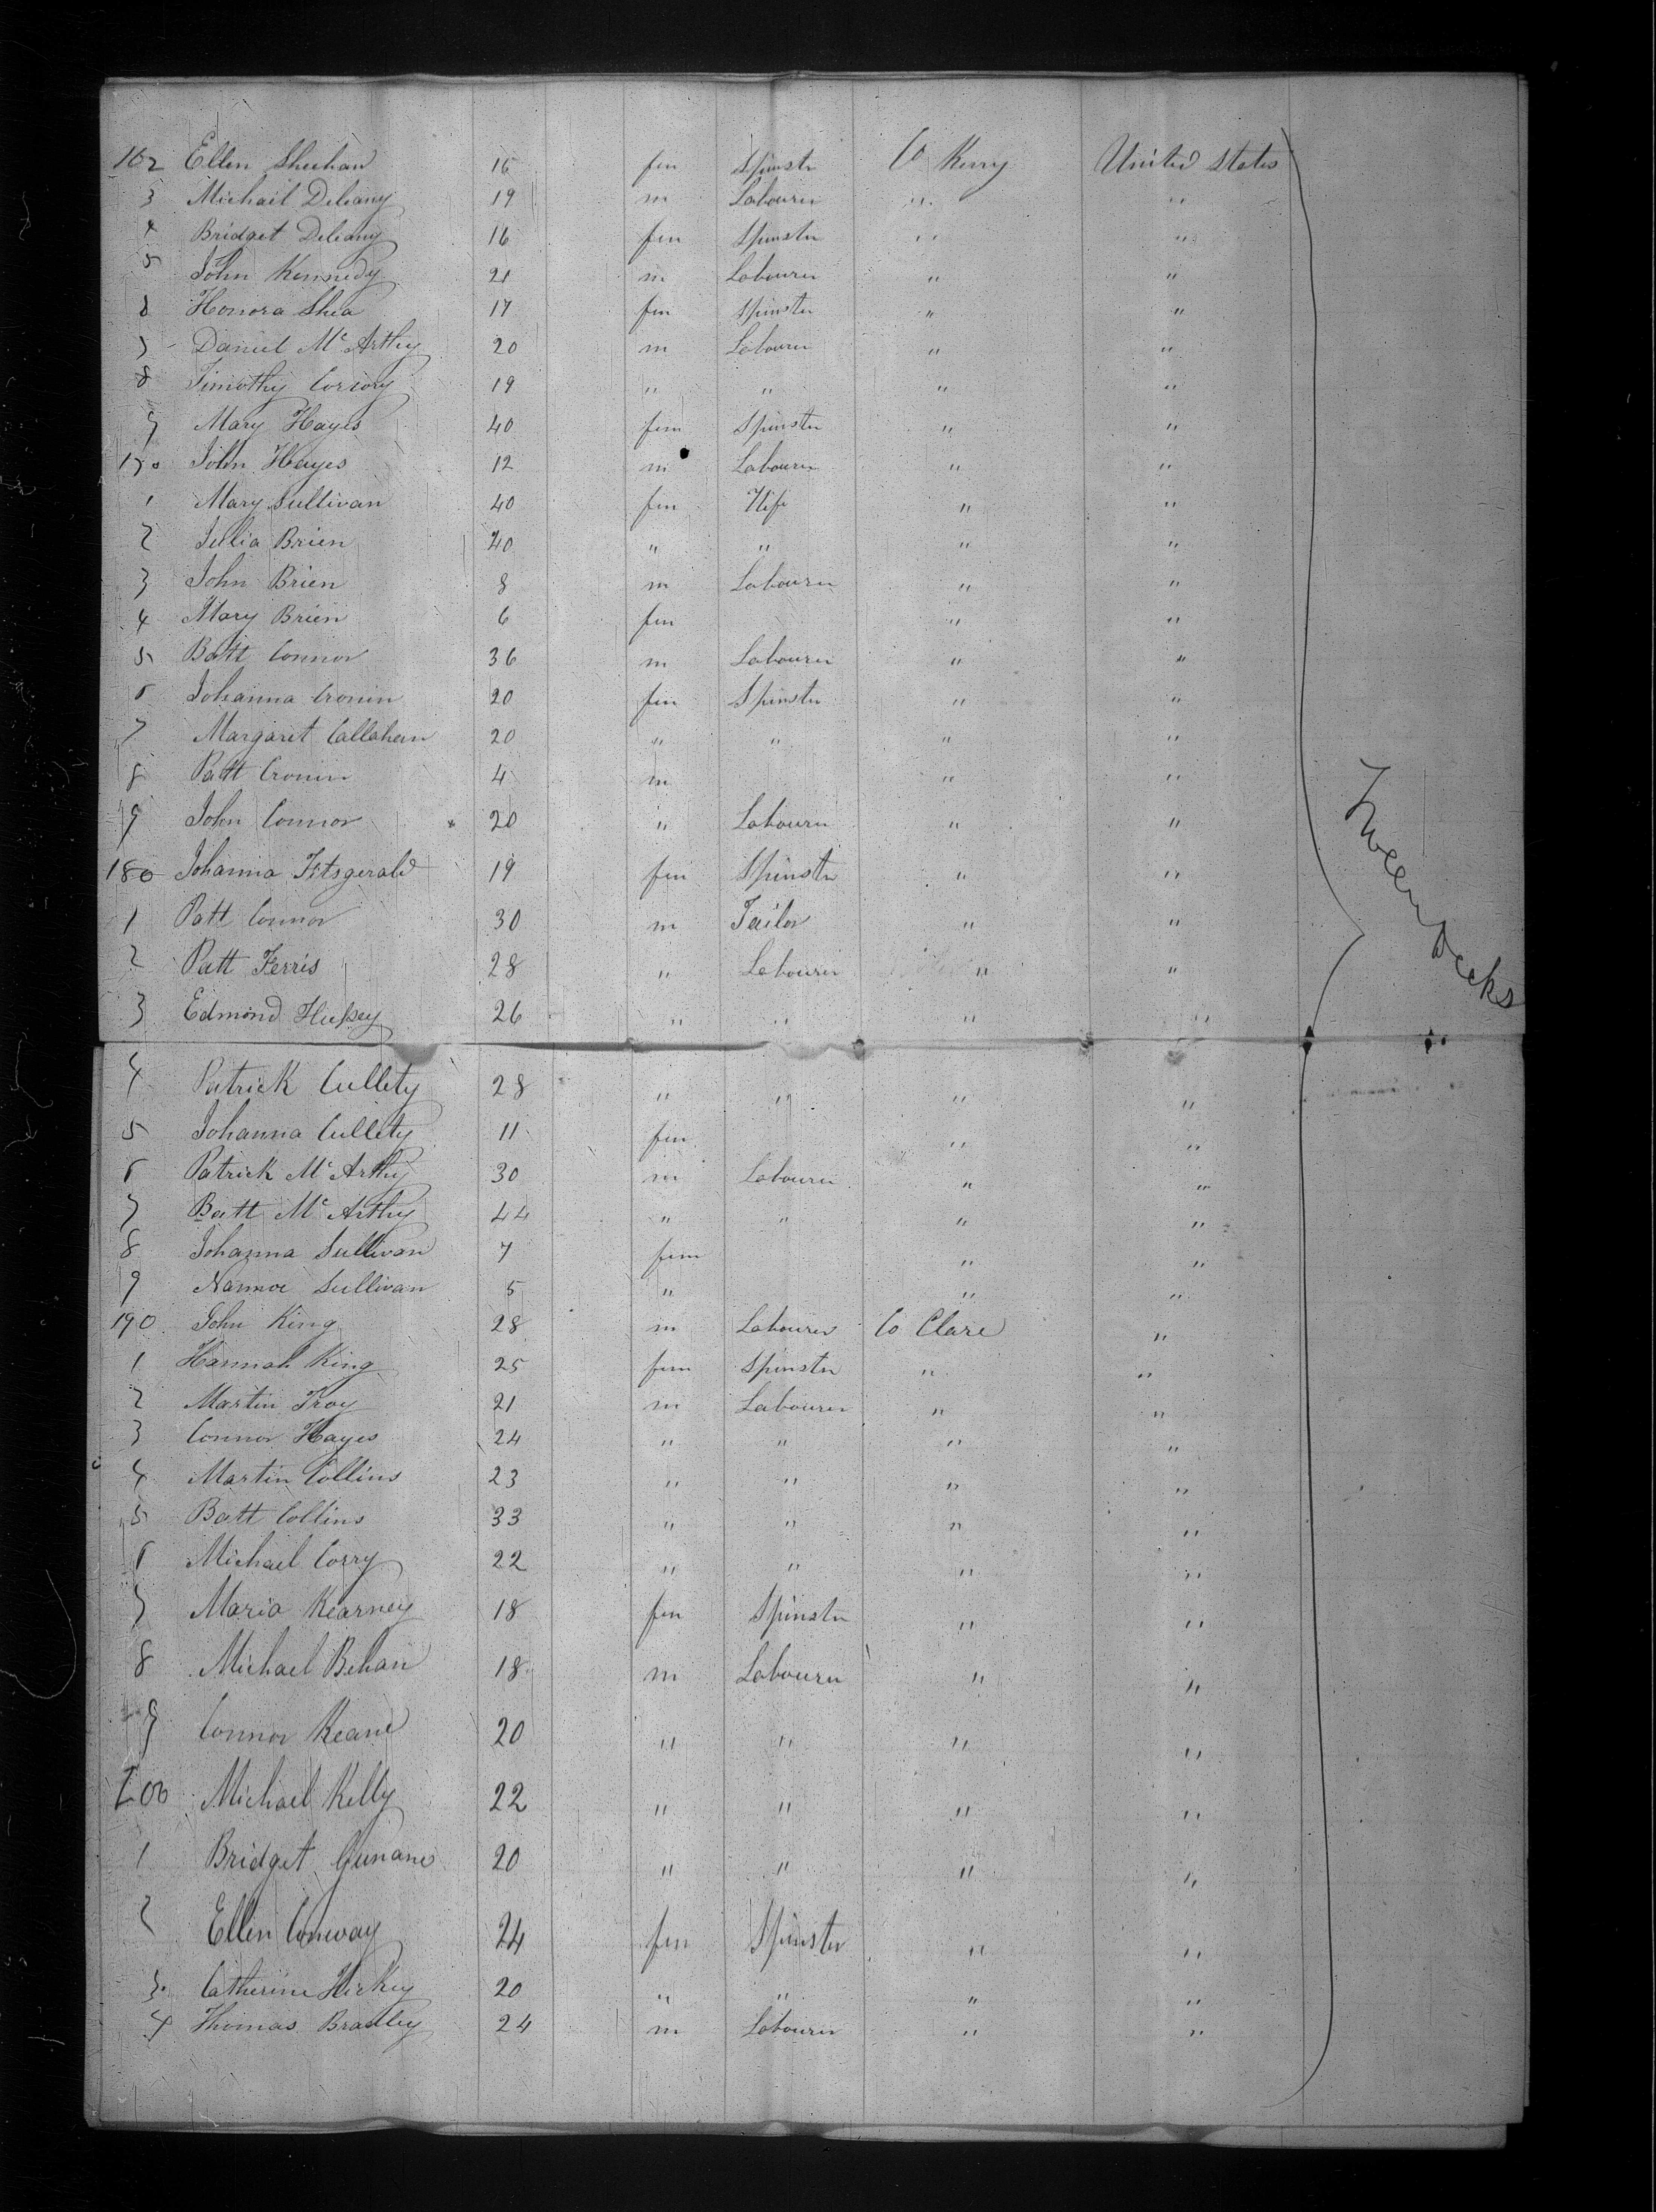 162 Ellen Sheehan 16 fem Spinstr Co Kerry United States
3 Michail Deleany 19 m Labourer " "
4 Bridget Deleany 16 fem Spinster " "
5 John Kennedy 21 m Labourer " "
6 Honora Shea 17 fem Spinster " "
7 Daniel McArthy 20 m Labourer " "
8 Timothy 19 " " " "
9 Mary Hayes 40 fem Spinster " "
170 John Hayes 12 m Labourer " "
1 Mary Sullivan 40 fem Wife " "
2 Julia Brien 40 " " " "
3 John Brien 8 m Labourer " "
4 Mary Brien 6 fem " "
5 Batt Connor 36 m Labourer " "
6 Johanna Cronin 20 fem Spinster " "
7 Margaret Callahan 20 " " " "
8 Patt Cronin 4 m " "
9 John Connor 20 " Labourer " "
180 Johanna Fitsgerald 19 fem Spinster " "
1 Patt Connor 30 m Tailor " "
2 Patt Ferris 28 " Labourer " "
3 Edmond Hussey 26 " " " "
Tween Decks
4 Patrick Cullety 28 " " " "
5 Johanna Cullety 11 fem " "
6 Patrick McArthy 30 m Labourer " "
7 Batt McArthy 44 " " " "
8 Johanna Sullivan 7 fem " "
9 Sullivan 5 " " "
190 John King 28 m Labourer Co Clare "
1 Hannah King 25 fem Spinster " "
2 Martin Troy 21 m Labourer " "
3 Connor Hayes 24 " " " "
4 Martin Collins 23 " " " "
5 Batt Collins 33 " " " "
6 Michael Corry 22 " " " "
7 Maria Kearney 18 fem Spinster " "
8 Michael Behan 18 m Labourer " "
9 Connor Keane 20 " " " "
200 Michael Kelly 22 " " " "
1 Bridget Gunane 20 " " " "
2 Ellen Conway 24 fem Spinster " "
3 Catherine Hickey 20 " " " "
4 Thomas Bradley 24 m Labourer " "